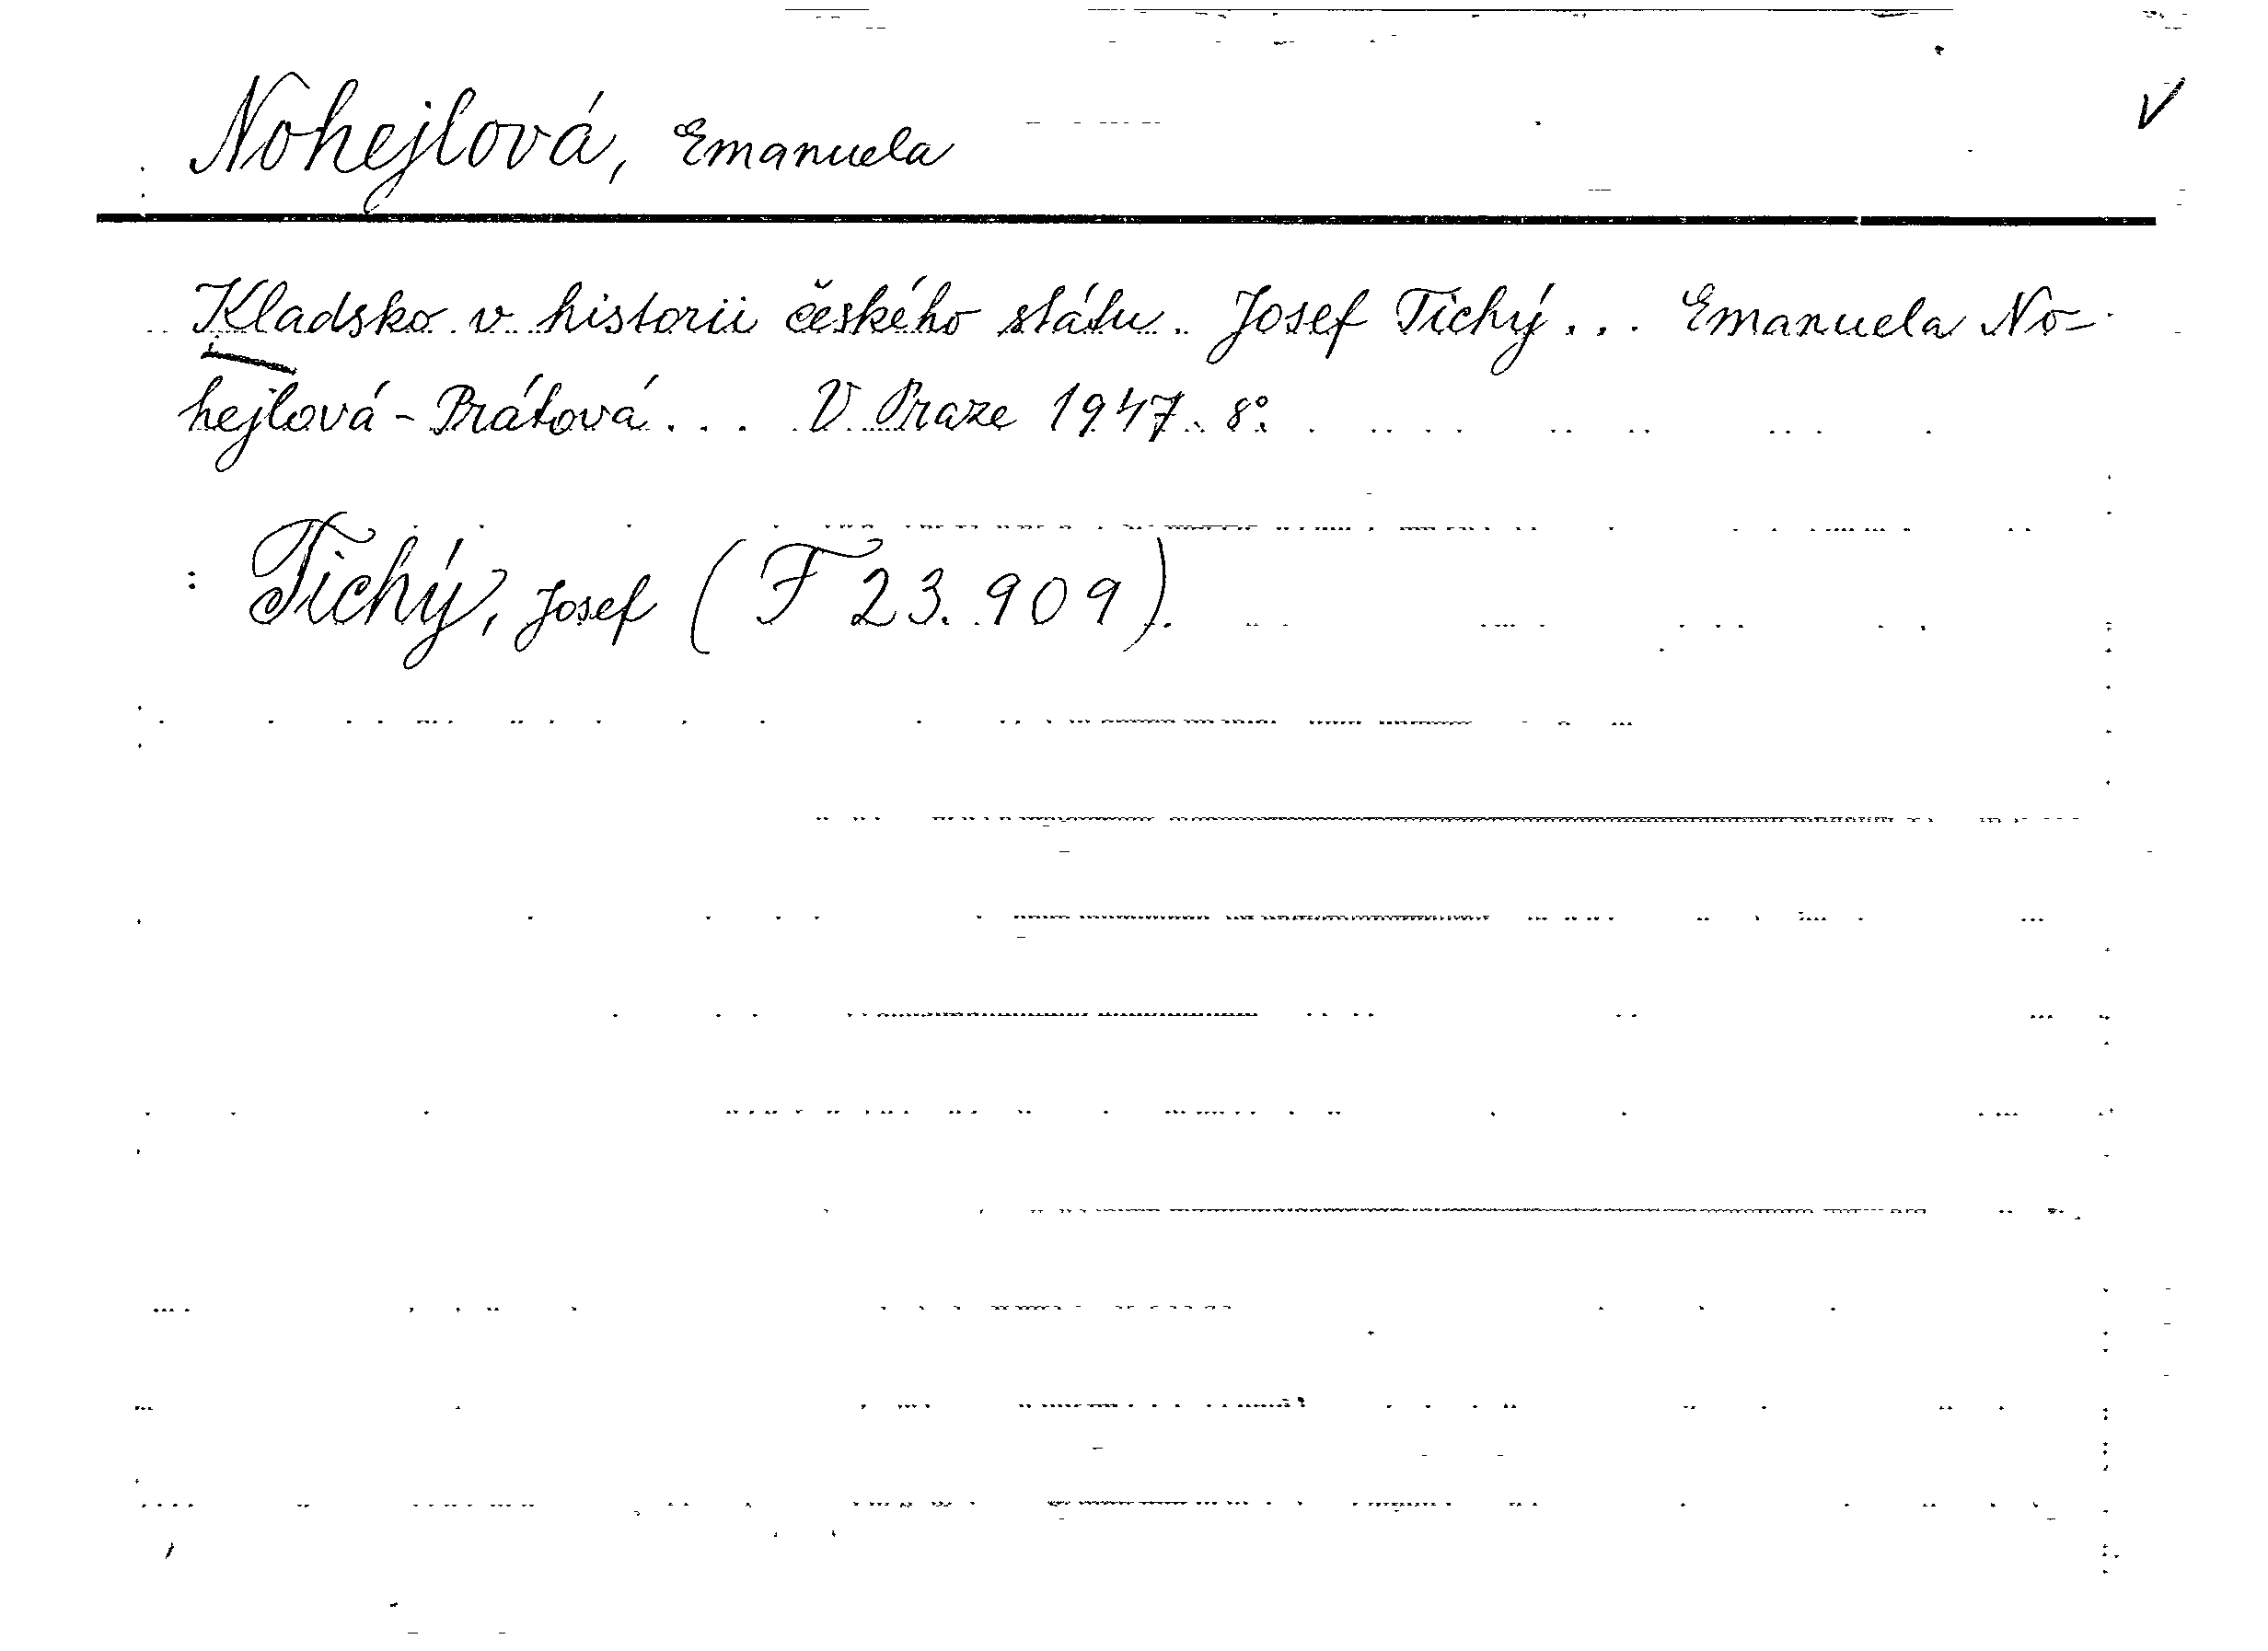 Nohejlová, Emanuela
V
Kladsko v historii českého státu. Josef Tichý... Emanuela No-
hejlová-Prátová... V Praze 1947. 8°.
: Tichý, Josef (F 23.909).